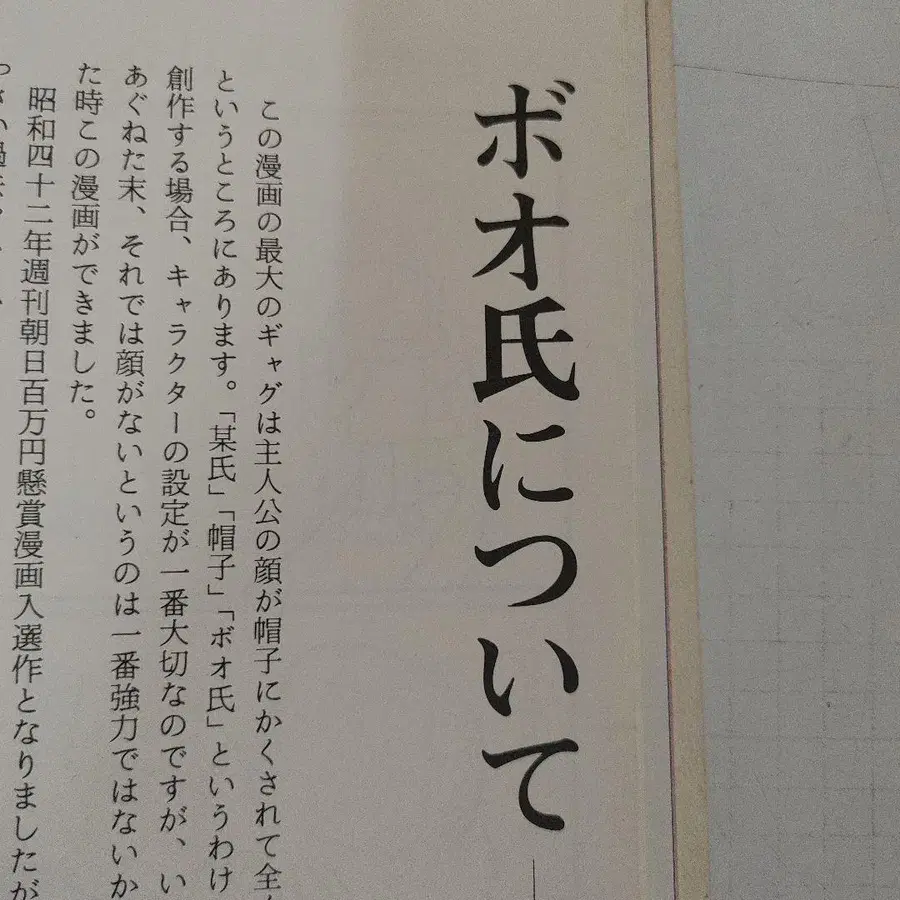 ボオ氏について
この漫画の最大のギャグは主人公の顔が帽子にかくされて全
というところにあります。「某氏」「帽子」「ボオ氏」というわけ
創作する場合、キャラクターの設定が一番大切なのですが、い
あぐねた末、それでは顔がないというのは一番強力ではないか
た時この漫画ができました。
昭和四十二年週刊朝日百万円懸賞漫画入選作となりましたが